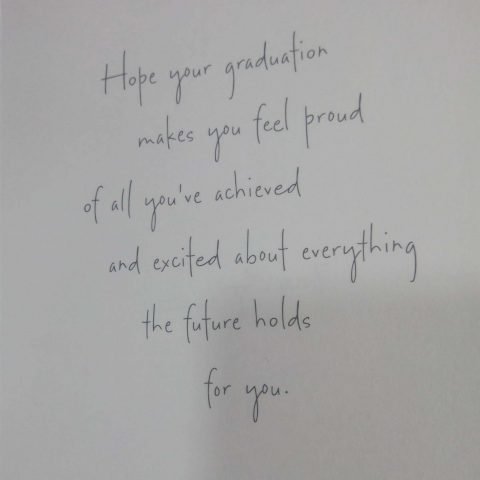 Hope your graduation
makes you feel proud
of all you've achieved
and excited about everything
the future holds
for you.